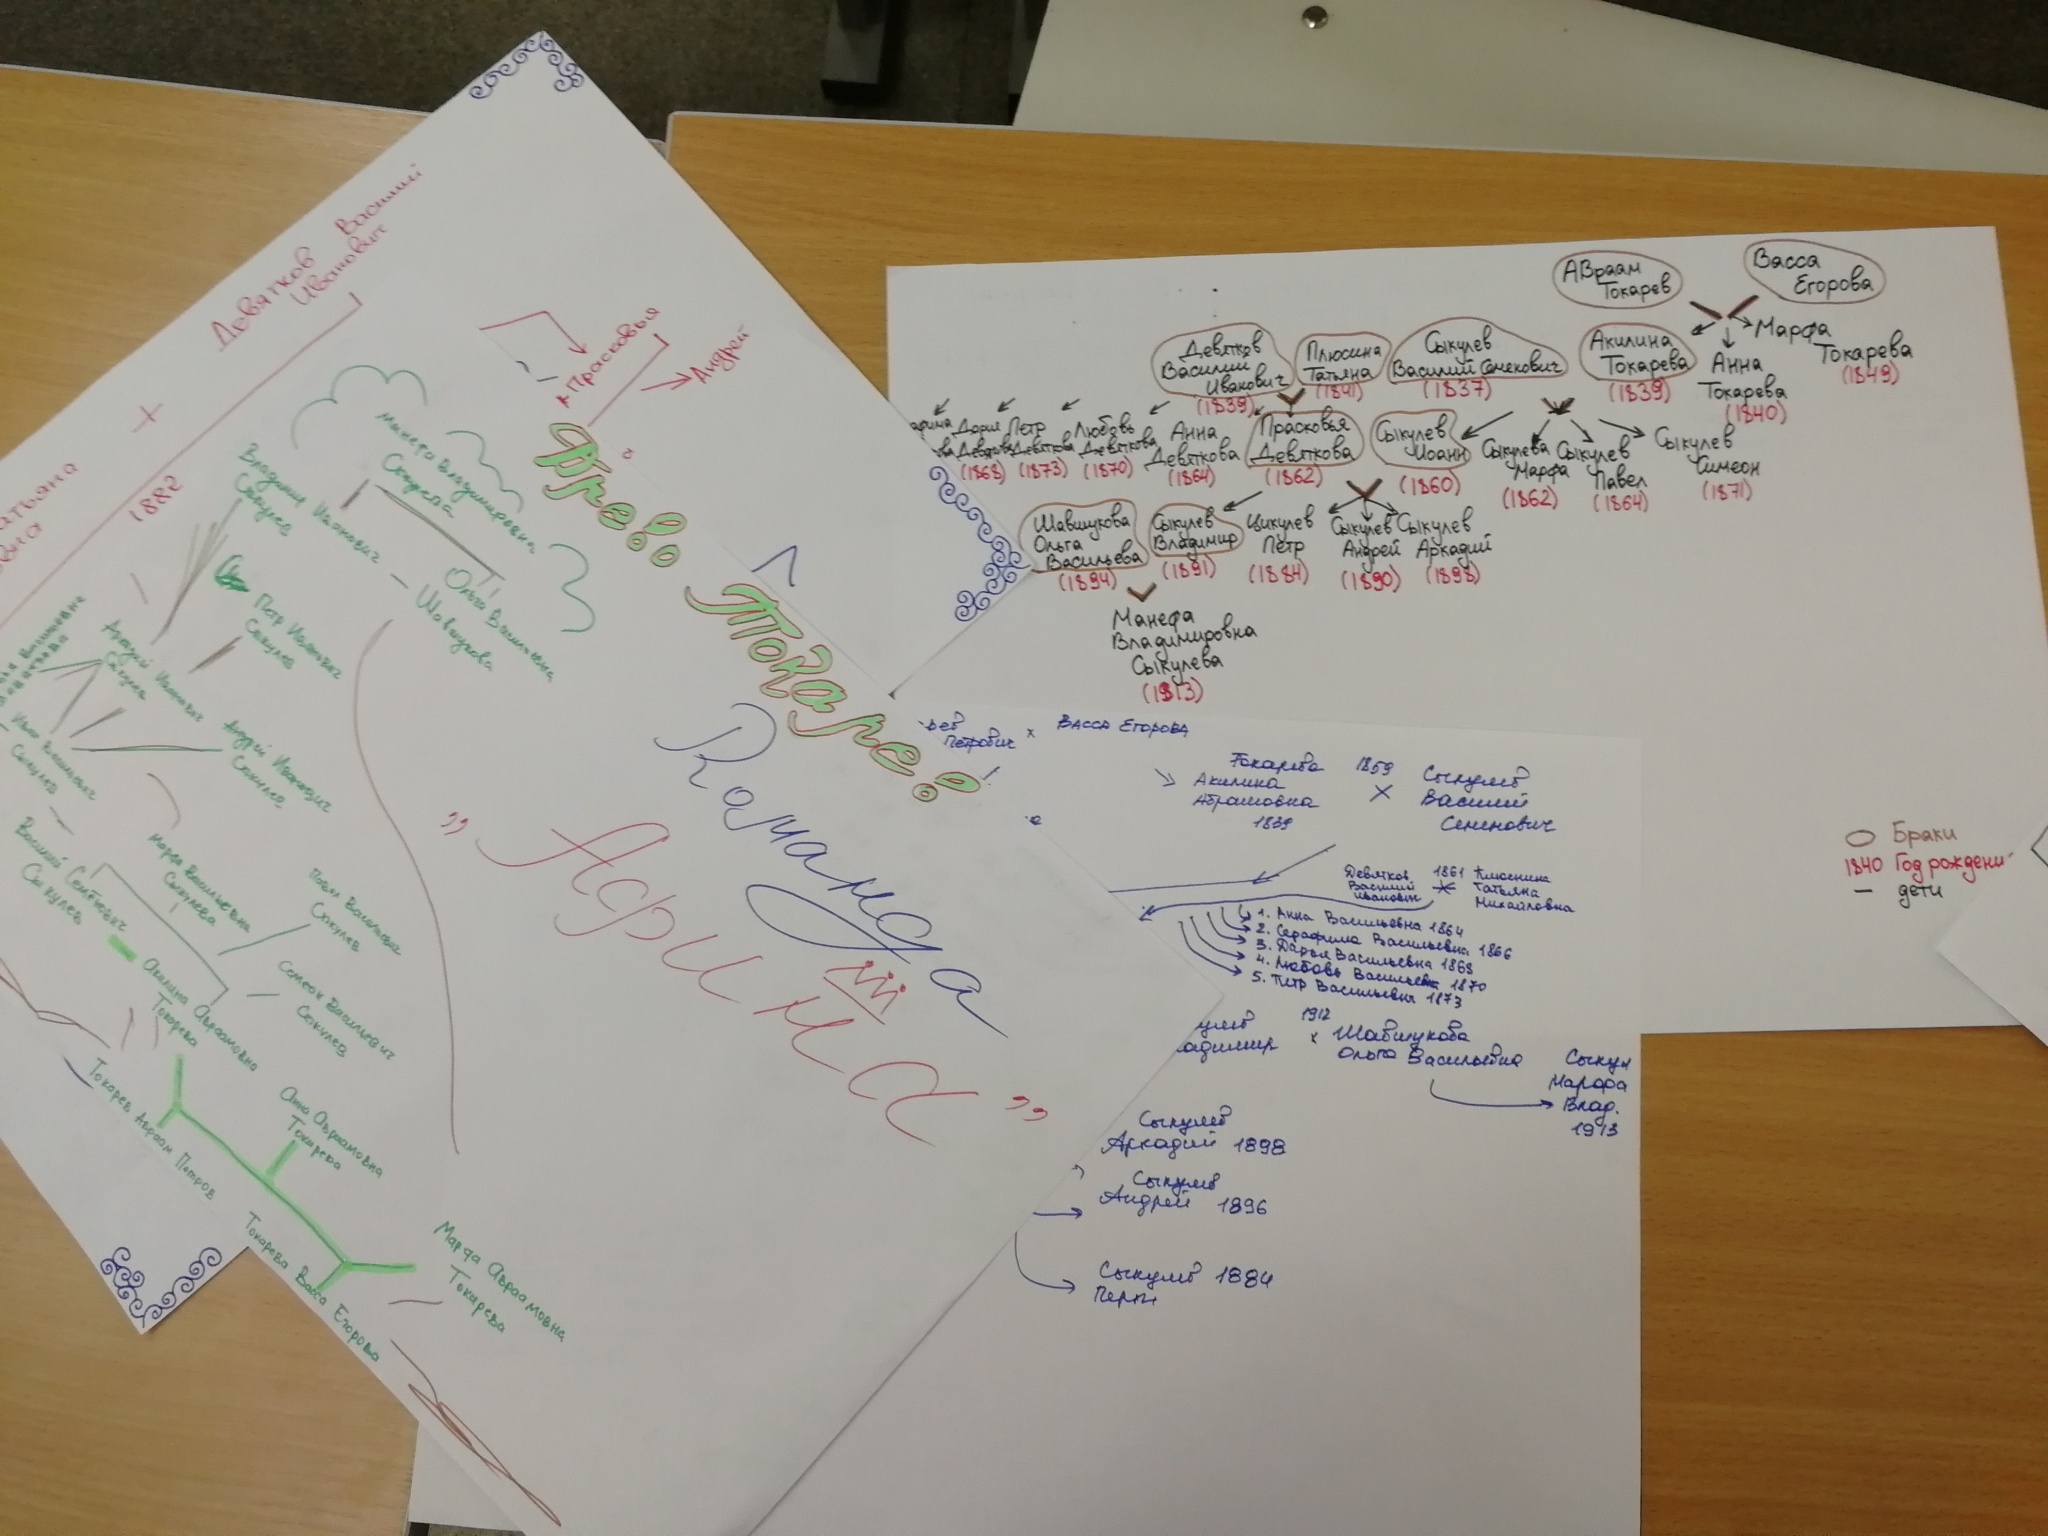 Девятков Василий
Иванович
+
1882
Прасковья
Андрей
Манефа Владимировна
Владимир Иванович
Ольга Васильевна
Шавшукова
Петр Иванович
Андрей Иванович
Василий Семёнович
Сыкулев
Марфа Васильевна
Сыкулева
Павел Васильевич
Сыкулев
Симеон Васильевич
Сыкулев
Акилина Авраамовна
Токарева
Токарев Авраам Петров
Анна Авраамовна
Токарева
Токарева Васса Егорова
Марфа Авраамовна
Токарева
Древо Токарев
Команда
"Арина"
Авраам
Токарев
Васса
Егорова
Девятков
Василий
Иванович
(1839)
Плюсина
Татьяна
(1841)
Сыкулев
Василий Семенович
(1837)
Акилина
Токарева
(1839)
Анна
Токарева
(1840)
Марфа
Токарева
(1849)
Дарья
Девяткова
(1868)
Петр
Девятков
(1873)
Любовь
Девяткова
(1870)
Анна
Девяткова
(1864)
Прасковья
Девяткова
(1862)
Сыкулев
Иоанн
(1860)
Сыкулева
Марфа
(1862)
Сыкулев
Павел
(1864)
Сыкулев
Симеон
(1871)
Шавшукова
Ольга
Васильева
(1894)
Сыкулев
Владимир
(1891)
Цикулев
Петр
(1884)
Сыкулев
Андрей
(1890)
Сыкулев
Аркадий
(1898)
Манефа
Владимировна
Сыкулева
(1913)
Браки
1840 Год рождени
— дети
Петрович x Васса Егорова
Токарева
Акилина
Абрамовна
1839
1859
x
Сыкулев
Василий
Семенович
Девятков
Василий
Иванович
1861
x
Плюснина
Татьяна
Михайловна
1. Анна Васильевна 1864
2. Серафима Васильевна 1866
3. Дарья Васильевна 1868
4. Любовь Васильевна 1870
5. Петр Васильевич 1873
1912
x
Шавшукова
Ольга Васильевна
Сыкул
Марфа
Влад.
1913
Сыкулев
Аркадий 1898
Сыкулев
Андрей 1896
Сыкулев 1884